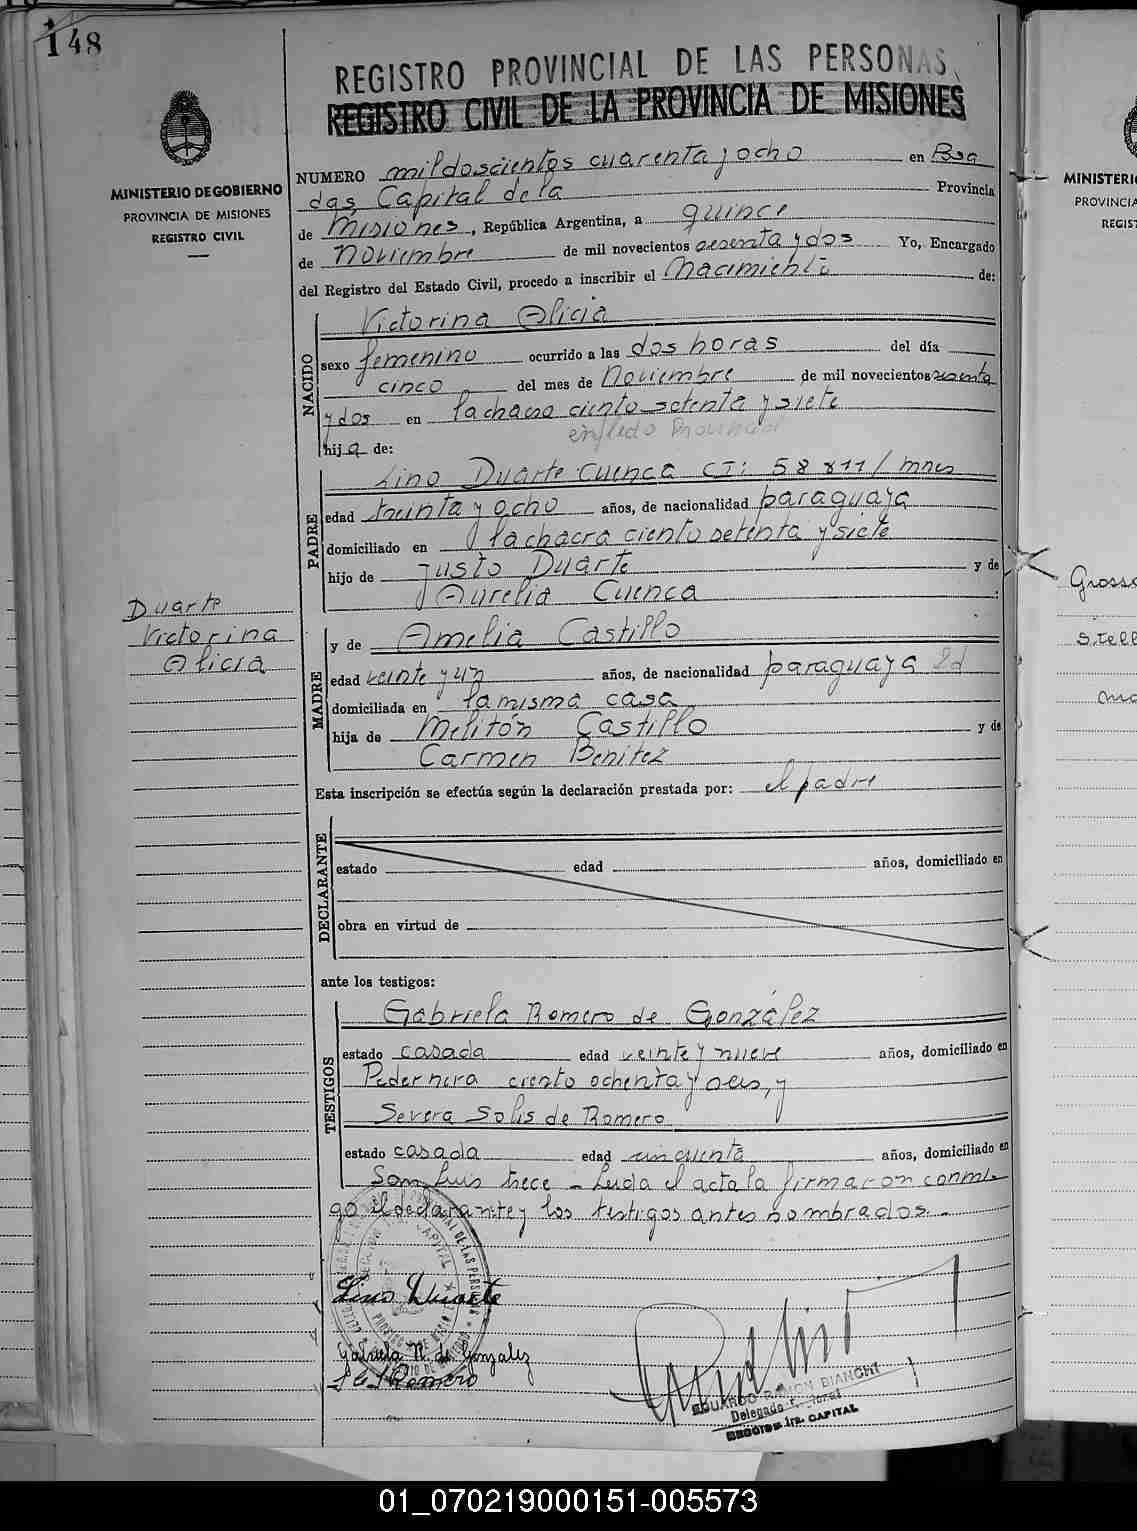 148
REGISTRO PROVINCIAL DE LAS PERSONAS
REGISTRO CIVIL DE LA PROVINCIA DE MISIONES
MINISTERIO DE GOBIERNO
PROVINCIA DE MISIONES
REGISTRO CIVIL
NUMERO mil doscientos cuarenta y ocho en Posa
das, Capital de la Provincia
de Misiones, República Argentina, a quince
de noviembre de mil novecientos sesenta y dos Yo, Encargado
del Registro del Estado Civil, procedo a inscribir el Nacimiento de:
NACIDO
Victorina Alicia
sexo femenino ocurrido a las dos horas del día
cinco del mes de Noviembre de mil novecientos sesenta
y dos en la chacra ciento setenta y siete
hija de:
PADRE
Lino Duarte Cuenca CI: 58 811/mnes
edad treinta y ocho años, de nacionalidad paraguaya
domiciliado en la chacra ciento setenta y siete
hijo de Justo Duarte y de
Aurelia Cuenca
Duarte
Victorina
Alicia
MADRE
y de Amelia Castillo
edad veinte y un años, de nacionalidad paraguaya
domiciliada en la misma casa
hija de Melitón Castillo y de
Carmen Benitez
Esta inscripción se efectúa según la declaración prestada por: el padre
DECLARANTE
estado edad años, domiciliado en
obra en virtud de
ante los testigos:
TESTIGOS
Gabriela Romero de González
estado casada edad veinte y nueve años, domiciliado en
Pedernera ciento ochenta y seis, y
Severa Solis de Romero
estado casada edad cincuenta años, domiciliado en
San Luis trece - Leida el acta la firmaron conmi-
go el declarante y los testigos antes nombrados.-
Lino Duarte
Gabriela R. de Gonzalez
S de Romero
EDUARDO RAMON BIANCHI
Delegado
SECCION 1ra. CAPITAL
MINISTERI
PROVINCIA
REGIST
Grosso
Stell
01_070219000151-005573